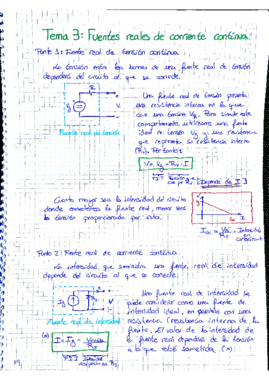 Tema 3: Fuentes reales de corriente continua.
Punto 1: Fuente real de tensión continua.
La tensión entre los bornes de una fuente real de tensión
dependerá del circuito al que se conecte.
Una fuente real de tensión presenta
una resistencia interna en la que
cae una tensión Vg. Para simular este
comportamiento utilizamos una fuente
ideal de tensión Vg y una resistencia
que representa su resistencia interna
(Rr). Por tanto:
Fuente real de tensión
V = Vg - Rr · I
[Depende de I]
Cuanto mayor sea la intensidad del circuito
donde conectamos la fuente real, menor será
la tensión proporcionada por ésta.
Intensidad
cortocircuito
Punto 2: Fuente real de corriente continua.
La intensidad que suministra una fuente real de intensidad
depende del circuito al que se conecte.
Una fuente real de intensidad se
puede considerar como una fuente de
intensidad ideal, en paralelo con una
resistencia (resistencia interna de la
fuente). El valor de la intensidad de
la fuente real dependerá de la tensión
a la que esté sometida. (*):
Fuente real de intensidad
(*)